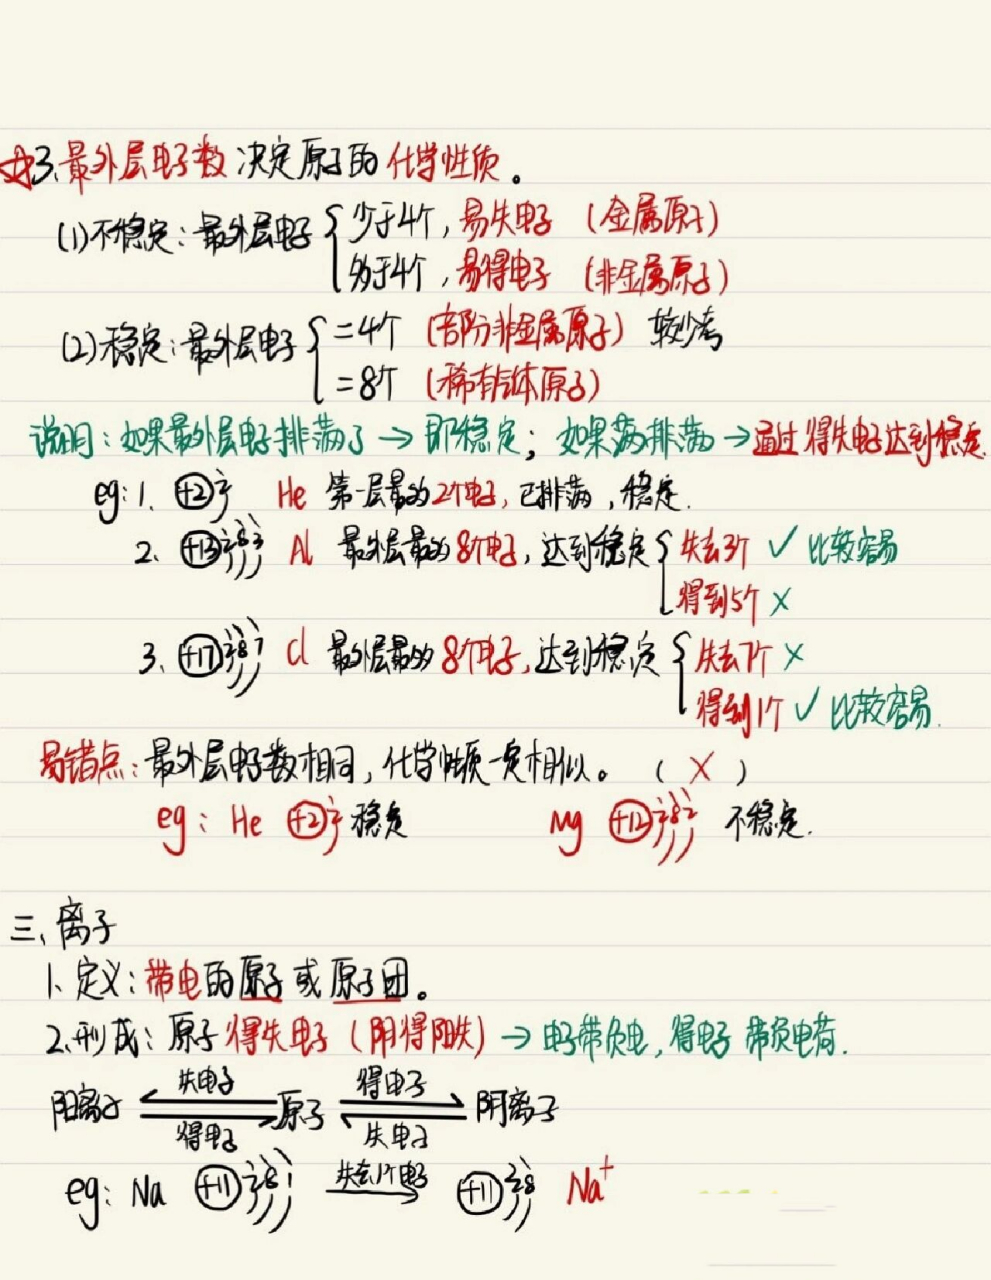 ☆3.最外层电子数决定原子的化学性质。
(1)不稳定:最外层电子{少于4个,易失电子(金属原子)
多于4个,易得电子(非金属原子)
(2)稳定:最外层电子{=4个(部分非金属原子)较少考
=8个(稀有气体原子)
说明:如果最外层电子排满了→即稳定;如果没排满→通过得失电子达到稳定
eg:1. +2 2 He 第一层最多2个电子,已排满,稳定.
2. +13 2 8 3 Al 最外层最多8个电子,达到稳定{失去3个 ✓ 比较容易
得到5个 ×
3. +17 2 8 7 Cl 最外层最多8个电子,达到稳定{失去7个 ×
得到1个 ✓ 比较容易.
易错点:最外层电子数相同,化学性质一定相似。(×)
eg:He +2 2 稳定 Mg +12 2 8 2 不稳定.
三、离子
1.定义:带电的原子或原子团。
2.形成:原子得失电子(阴得阳失)→电子带负电,得电子带负电荷.
失电子 得电子
阳离子 原子 阴离子
得电子 失电子
eg:Na +11 2 8 1 失去1个电子 +11 2 8 Na⁺